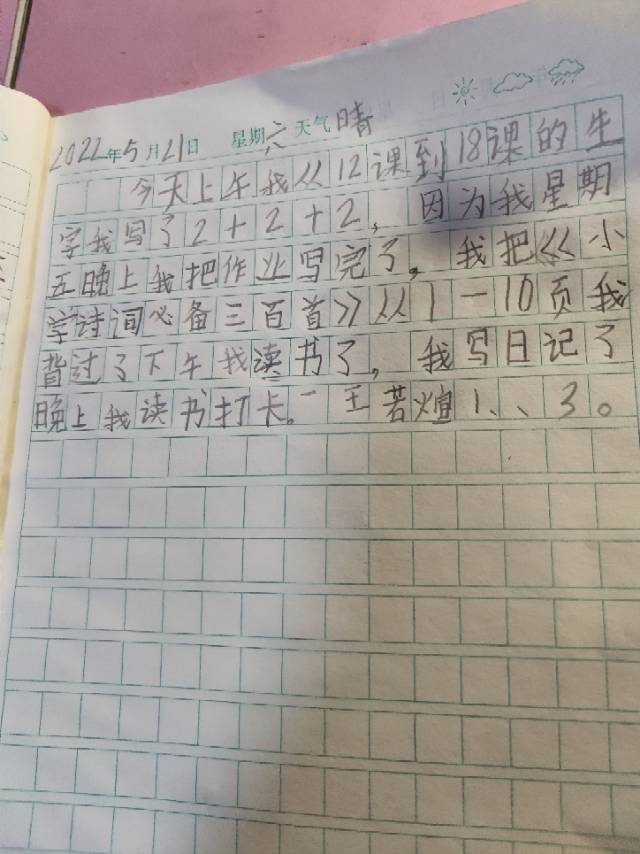 2022年5月21日 星期六 天气晴
今天上午我从12课到18课的生
字我写了2+2+2，因为我星期
五晚上我把作业写完了。我把《小
学诗词必备三百首》从1一10页我
背过了下午我读书了，我写日记了
晚上我读书打卡。一王若煊1、、3。